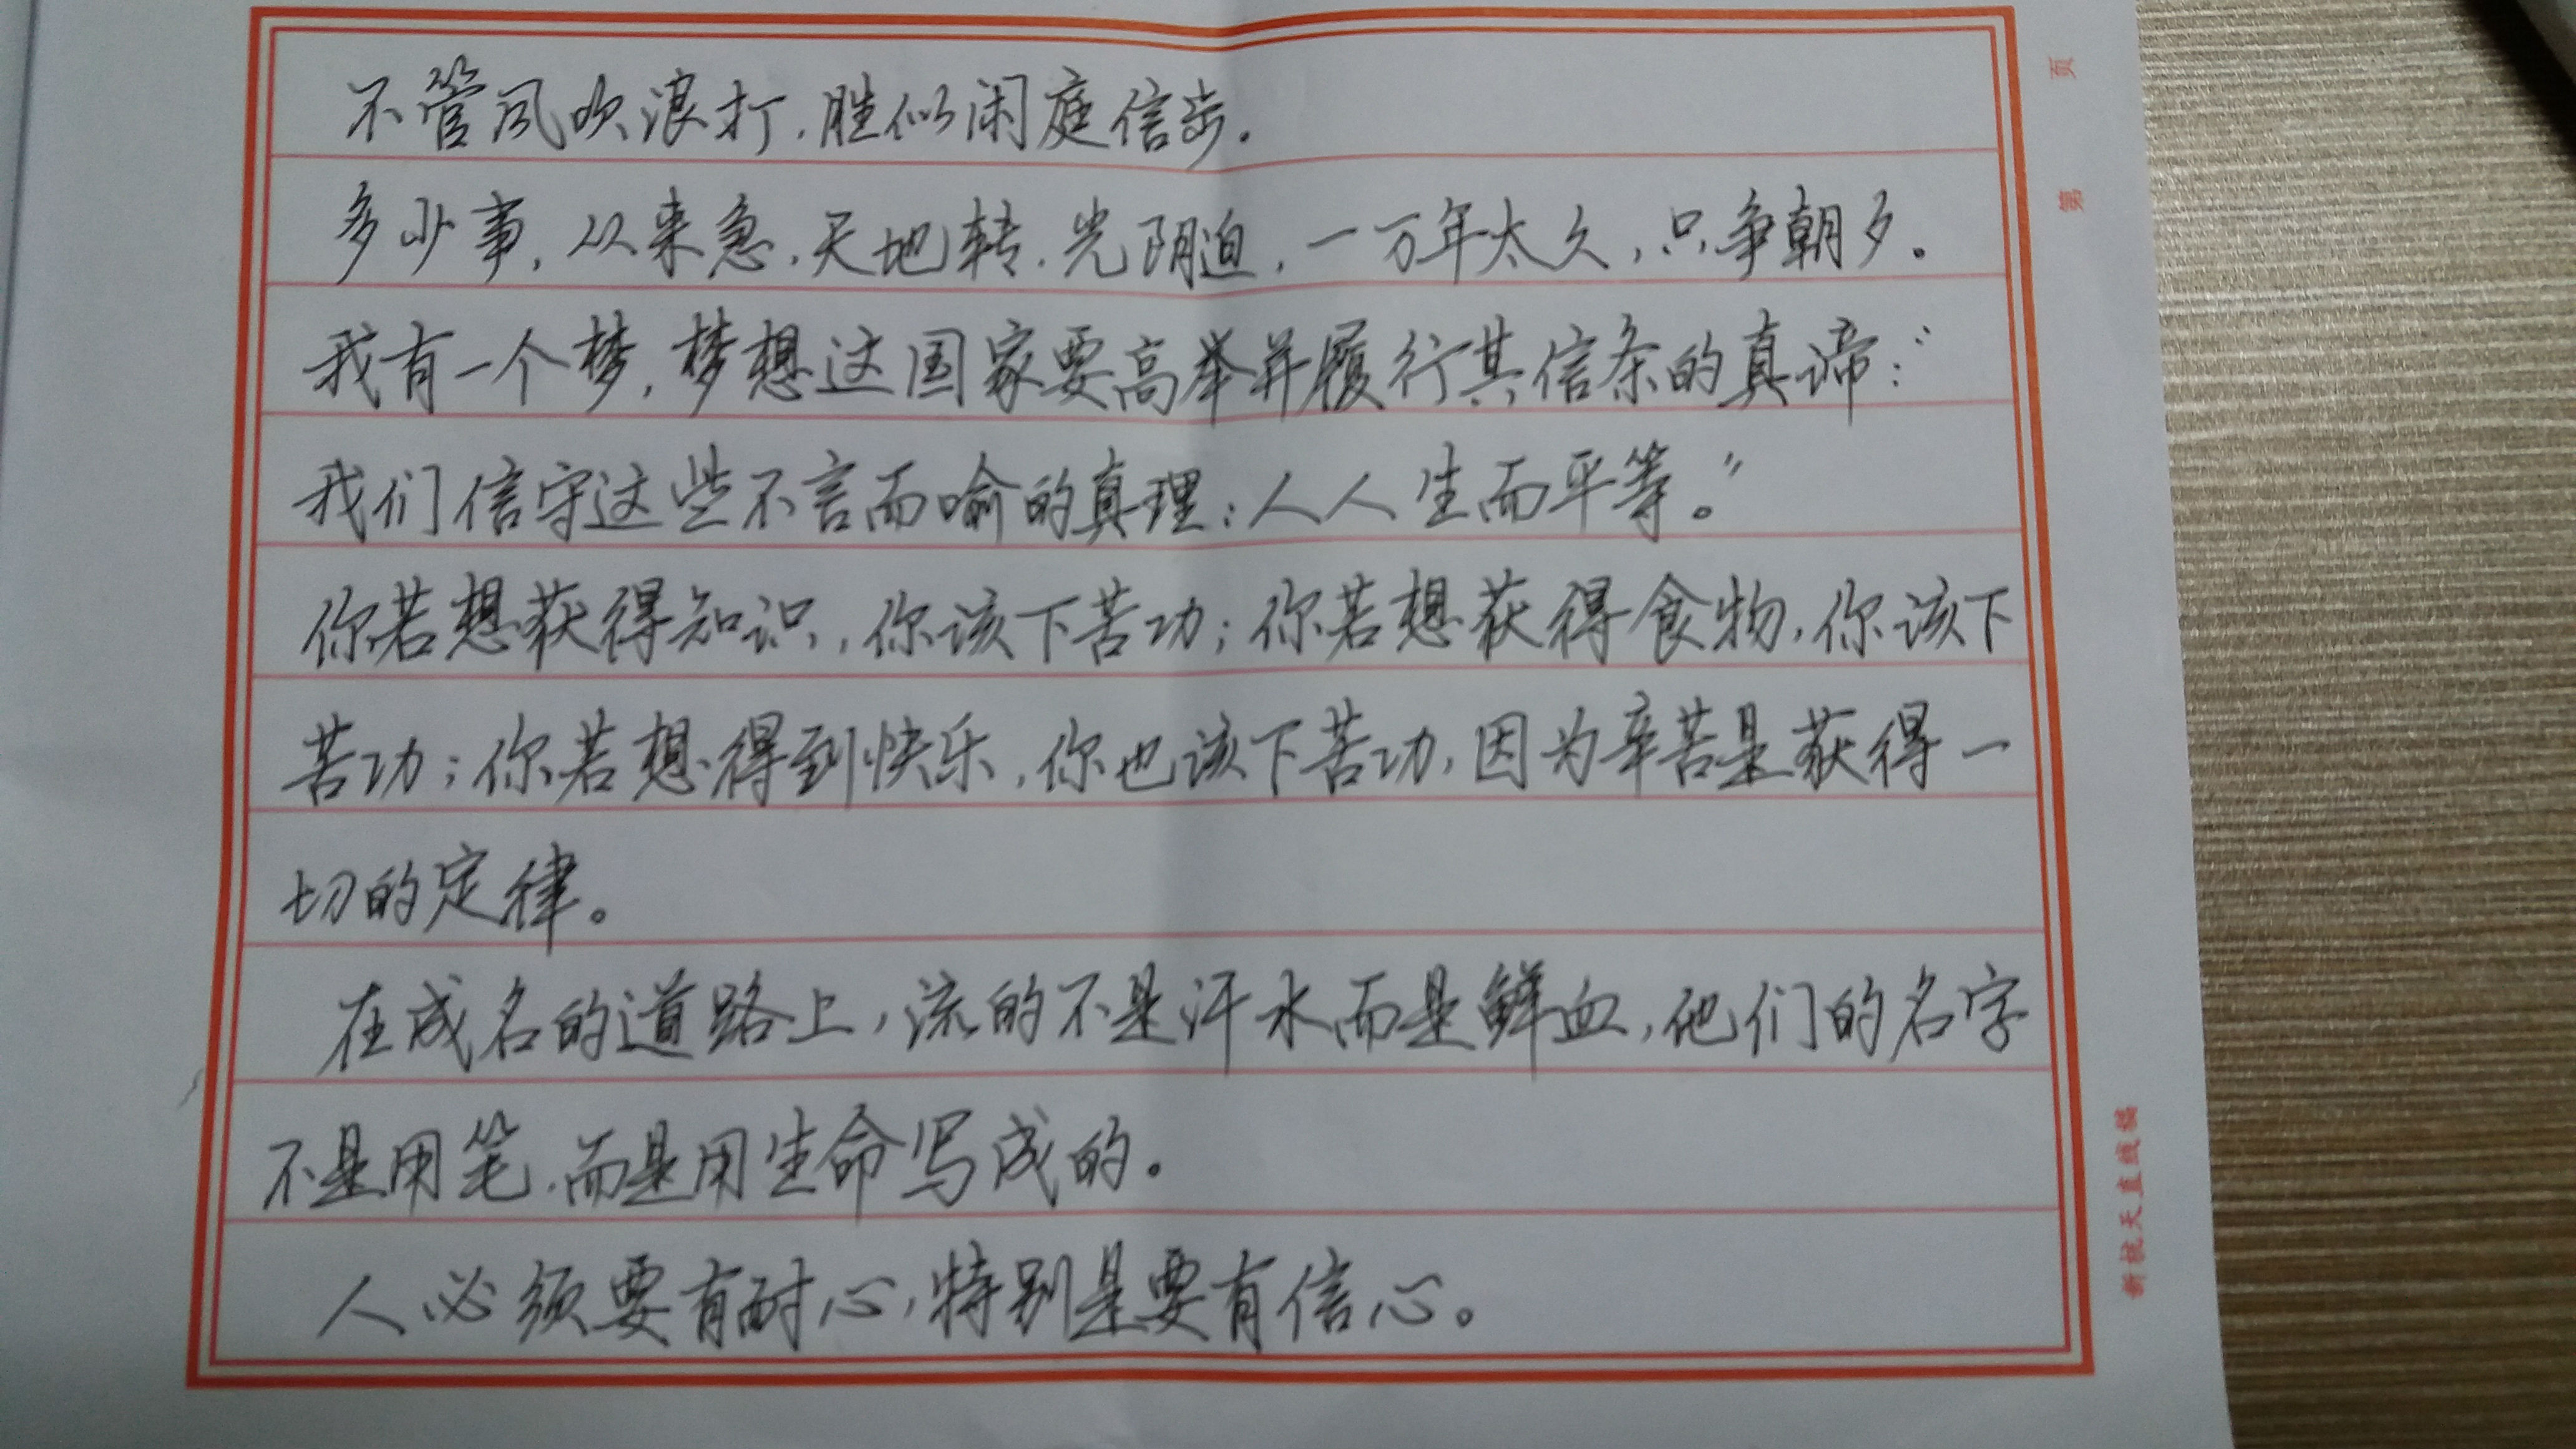 不管风吹浪打，胜似闲庭信步。
多少事，从来急，天地转，光阴迫，一万年太久，只争朝夕。
我有一个梦，梦想这国家要高举并履行其信条的真谛：“
我们信守这些不言而喻的真理：人人生而平等。”
你若想获得知识，你该下苦功；你若想获得食物，你该下
苦功；你若想得到快乐，你也该下苦功，因为辛苦是获得一
切的定律。
在成名的道路上，流的不是汗水而是鲜血，他们的名字
不是用笔，而是用生命写成的。
人必须要有耐心，特别是要有信心。
第 页
新杭天直线稿